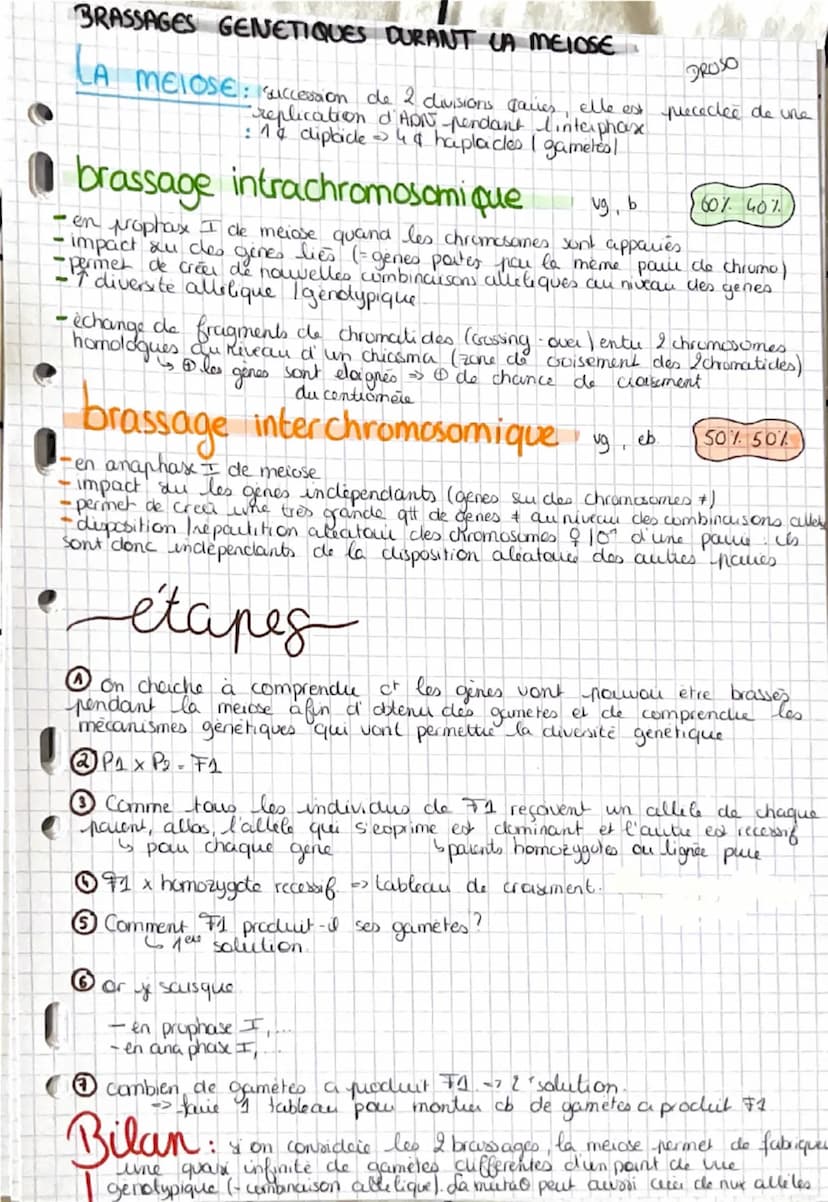 BRASSAGES GENETIQUES DURANT LA MEIOSE
DROSO
LA MEIOSE: succession de 2 divisions , elle est precedée de une
replication d'ADN pendant l'interphase
: 1 diploide => 4 haploides ( gametes)
brassage intrachromosomique vg, b 60% 40%
- en prophase I de meiose quand les chromosomes sont appariés
- impact sur des gènes liés (= gènes portés par la même paire de chromo)
- permet de créer de nouvelles combinaisons alleliques au niveau des genes
- ↑ diversite allelique / génotypique
- échange de fragments de chromatides (crossing-over) entre 2 chromosomes
homologues au niveau d'un chiasma (zone de croisement des 2 chromatides)
↳ ⊕ les gènes sont eloignés => ⊕ de chance de croisement
du centromère
brassage interchromosomique vg, eb 50% 50%
- en anaphase I de meiose
- impact sur les gènes indépendants (gènes sur des chromosomes ≠)
- permet de creer une très grande qtt de gènes ≠ au niveau des combinaisons allel
- disposition / répartition aléatoire des chromosomes ♀ / ♂ d'une paire : ils
sont donc indépendants de la disposition aléatoire des autres paires
étapes
① On cherche à comprendre ct les gènes vont pouvoir être brassés
pendant la meiose afin d'obtenir des gametes et de comprendre les
mécanismes génétiques qui vont permettre la diversité genetique
② P1 x P2 = F1
③ Comme tous les individus de F1 reçoivent un allele de chaque
parent, alors, l'allele qui s'exprime est dominant et l'autre est recessif
↳ pour chaque gène ↳ parents homozygotes ou lignée pure
④ F1 x homozygote recessif => tableau de croisement.
⑤ Comment F1 produit-il ses gamètes?
↳ 1ere solution
⑥ or je sais que
- en prophase I, ...
- en anaphase I, ...
⑦ combien de gamètes a produit F1 -> 2e solution.
=> faire 1 tableau pour montrer cb de gametes a produit F1
Bilan : si on considère les 2 brassages, la meiose permet de fabriquer
une quasi infinité de gamètes differentes d'un point de vue
génotypique (= combinaison allelique). La mutat° peut avoir créé de nvx alleles